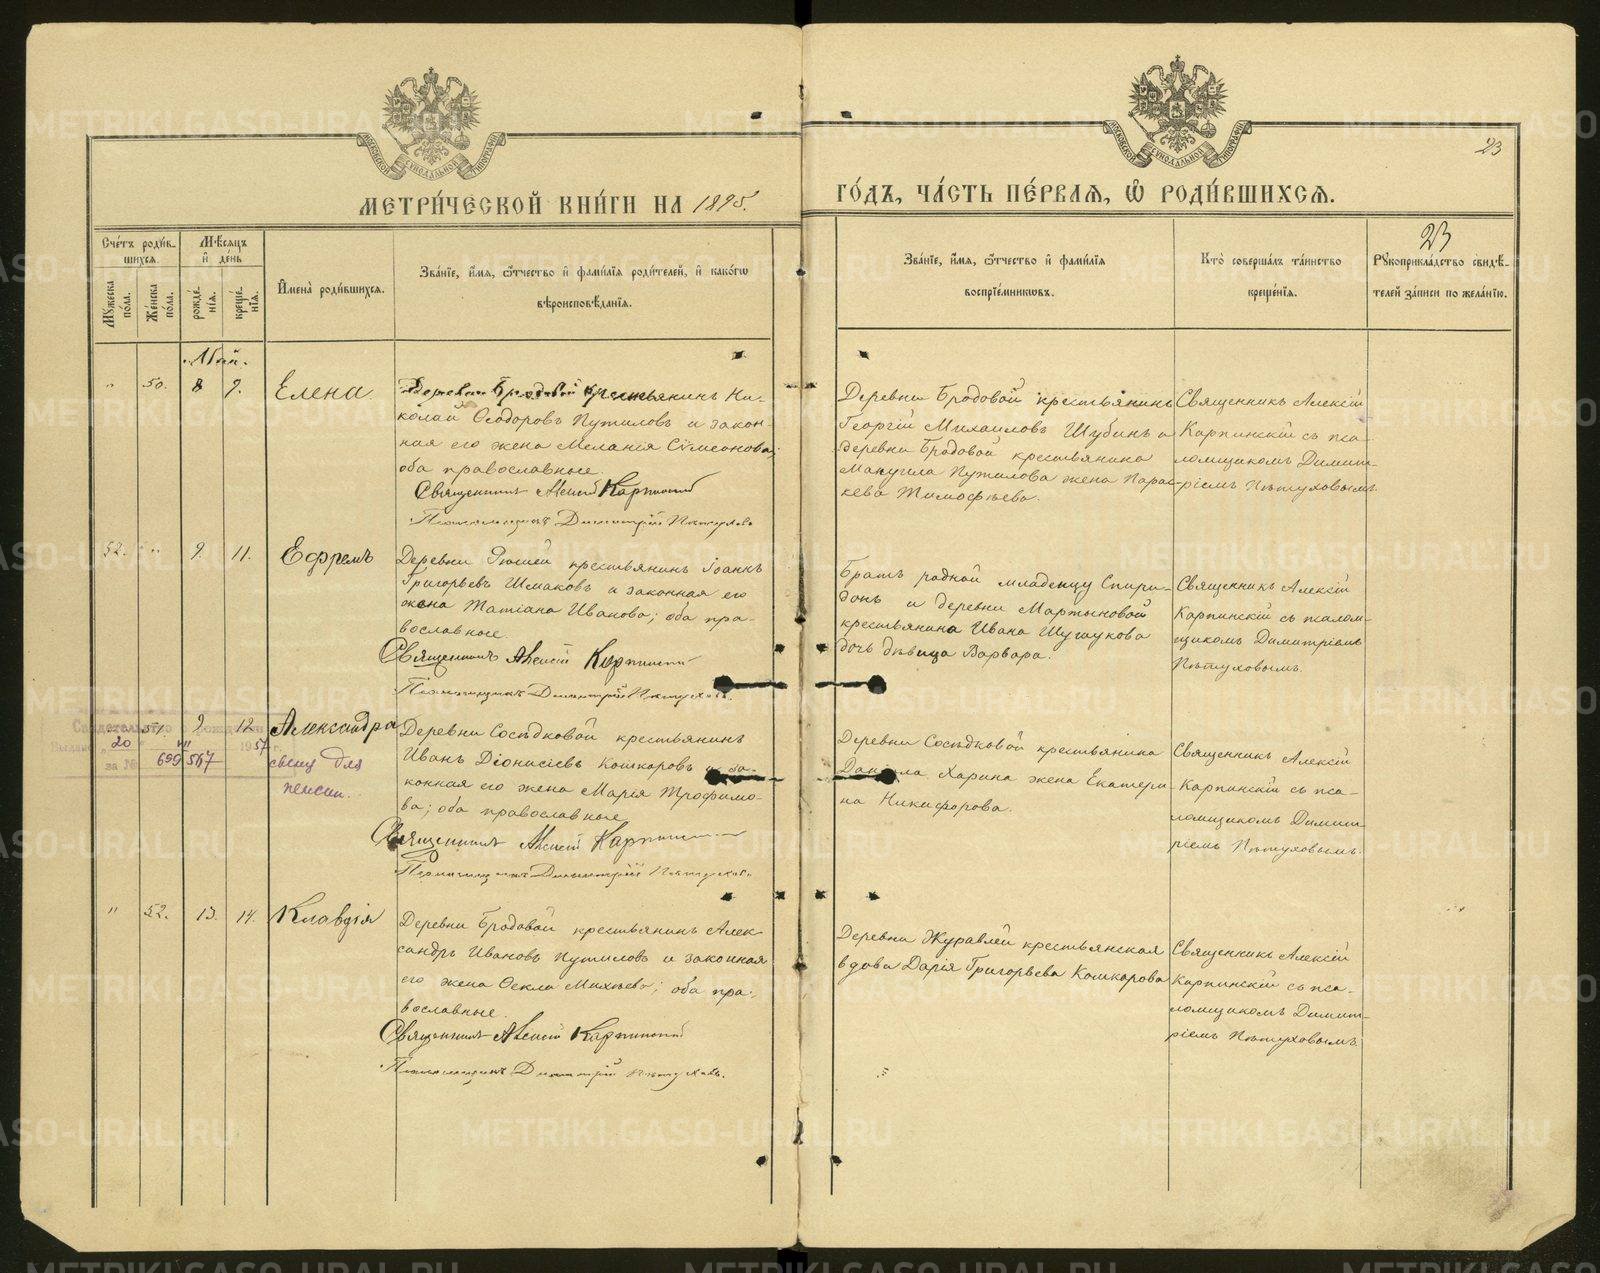 МЕТРИ́ЧЕСКОЙ КНИ́ГИ НА 1895.
ГО́ДЪ, ЧА́СТЬ ПЕ́РВАЯ, Ѡ РОДИ́ВШИХСЯ.
МОСКОВСКОЙ СѴНОДАЛЬНОЙ ТИПОГРАФІИ
МОСКОВСКОЙ СѴНОДАЛЬНОЙ ТИПОГРАФІИ
23
23
Сче́тъ роди́в-
шихся.
Му́жеска по́ла.
Же́нска по́ла.
Мѣ́сяцъ
и҆ де́нь
рожде́-
нїѧ.
креще́-
нїѧ.
И҆мена̀ роди́вшихся.
Зва́нїе, и҆́мя, ѻ҆́тчество и҆ фами́лїя роди́телей, и҆ како́гѡ
вѣроисповѣ́данїя.
Зва́нїе, и҆́мя, ѻ҆́тчество и҆ фами́лїя
воспрїе́мникѡвъ.
Кто̀ соверша́лъ та́инство
креще́нїя.
Рꙋкоприкла́дство свидѣ́-
телей за́писи по жела́нїю.
Май.
" 50. 8 9. Елена
Деревни Бродовой крестьянинъ Ни-
колай Ѳеодоровъ Путиловъ и закон-
ная его жена Меланія Сѵмеонова;
оба православные.
Священникъ Алексій Карпинскій
Псаломщикъ Димитрій Пѣтуховъ
Деревни Бродовой крестьянинъ
Георгій Михаиловъ Шубинъ и
деревни Бродовой крестьянина
Мануила Путилова жена Парас-
кева Тимофѣева.
Священникъ Алексій
Карпинскій съ пса-
ломщикомъ Димит-
ріемъ Пѣтуховымъ.
52. " 9. 11. Ефремъ
Деревни крестьянинъ Іоаннъ
Григорьевъ Шмаковъ и законная его
жена Татіана Иванова; оба пра-
вославные.
Священникъ Алексій Карпинскій
Псаломщикъ Димитрій Пѣтуховъ.
Братъ родной младенцу Спири-
донъ и деревни Мартыновой
крестьянина Ивана Шушукова
дочь дѣвица Варвара.
Священникъ Алексій
Карпинскій съ псалом-
щикомъ Димитріемъ
Пѣтуховымъ.
" 51. 9 12 Александра
Свидетельство о рождении
Выдано „20" VII 1957 г.
за № 699567
свещ для
пенсии.
Деревни Сосѣдковой крестьянинъ
Иванъ Діонисіевъ Кошкаровъ и за-
конная его жена Марія Трофимо-
ва; оба православные
Священникъ Алексій Карпинскій
Псаломщикъ Димитрій Пѣтуховъ
Деревни Сосѣдковой крестьянина
Даніила Харина жена Екатери-
на Никифорова.
Священникъ Алексій
Карпинскій съ пса-
ломщикомъ Димит-
ріемъ Пѣтуховымъ.
" 52. 13. 14. Клавдія
Деревни Бродовой крестьянинъ Алек-
сандръ Ивановъ Путиловъ и законная
его жена Ѳекла Михѣева; оба пра-
вославные.
Священникъ Алексій Карпинскій
Псаломщикъ Димитрій Пѣтуховъ.
Деревни Журавлей крестьянская
вдова Дарія Григорьева Кошкарова
Священникъ Алексій
Карпинскій съ пса-
ломщикомъ Димит-
ріемъ Пѣтуховымъ.
METRIKI.GASO-URAL.RU